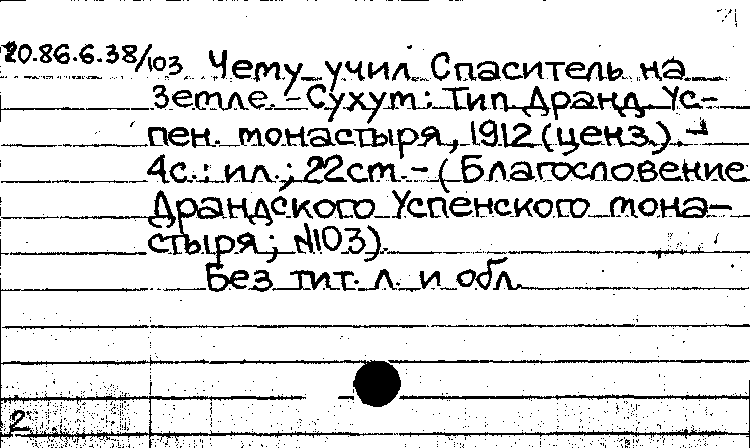 20.86.6.38/103 Чему учил Спаситель на
Земле. - Сухум: Тип. Дранд. Ус-
пен. монастыря, 1912 (ценз.). -
4с.: ил.; 22см. - (Благословение
Драндского Успенского мона-
стыря; №103).
Без тит. л. и обл.
2